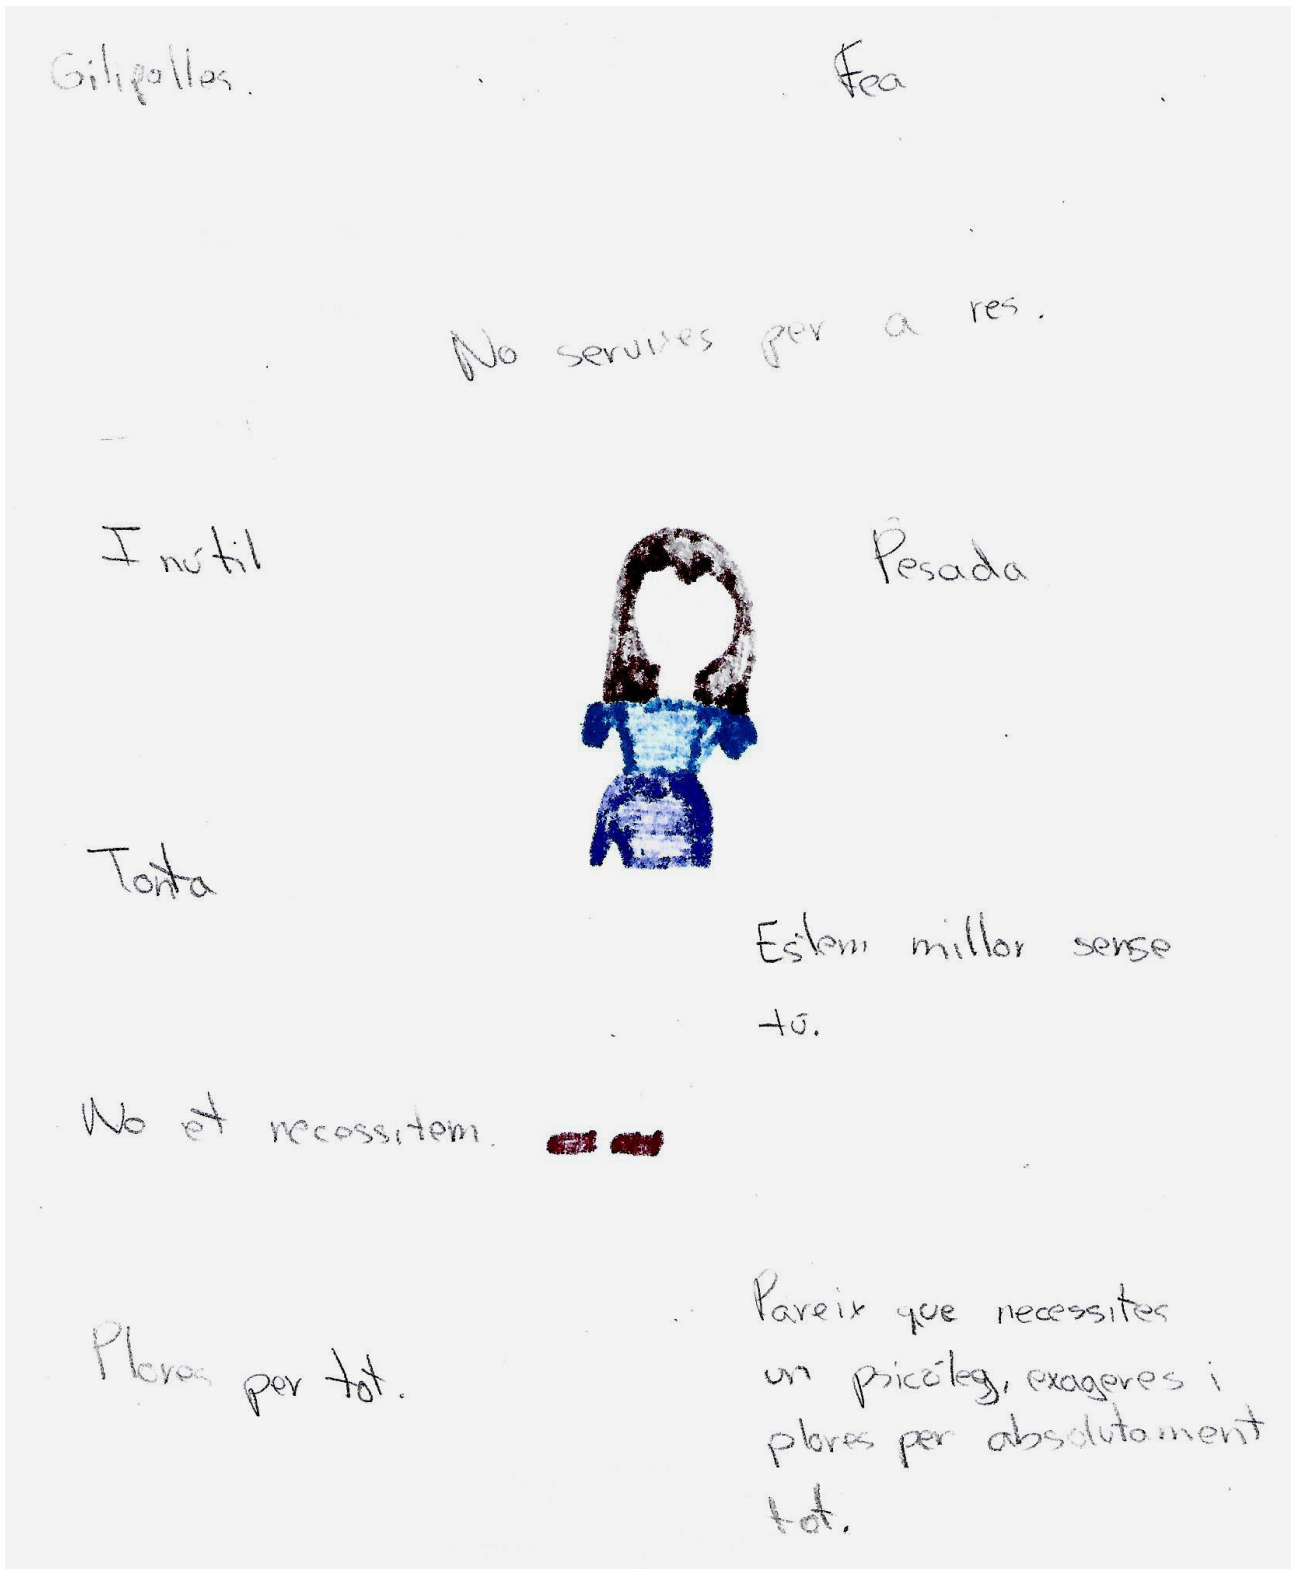 Gilipolles.
Fea
No servixes per a res.
Inútil
Pesada
Tonta
Estem millor sense
tú.
No et necessitem.
Plores per tot.
Pareix que necessites
un psicóleg, exageres i
plores per absolutament
tot.